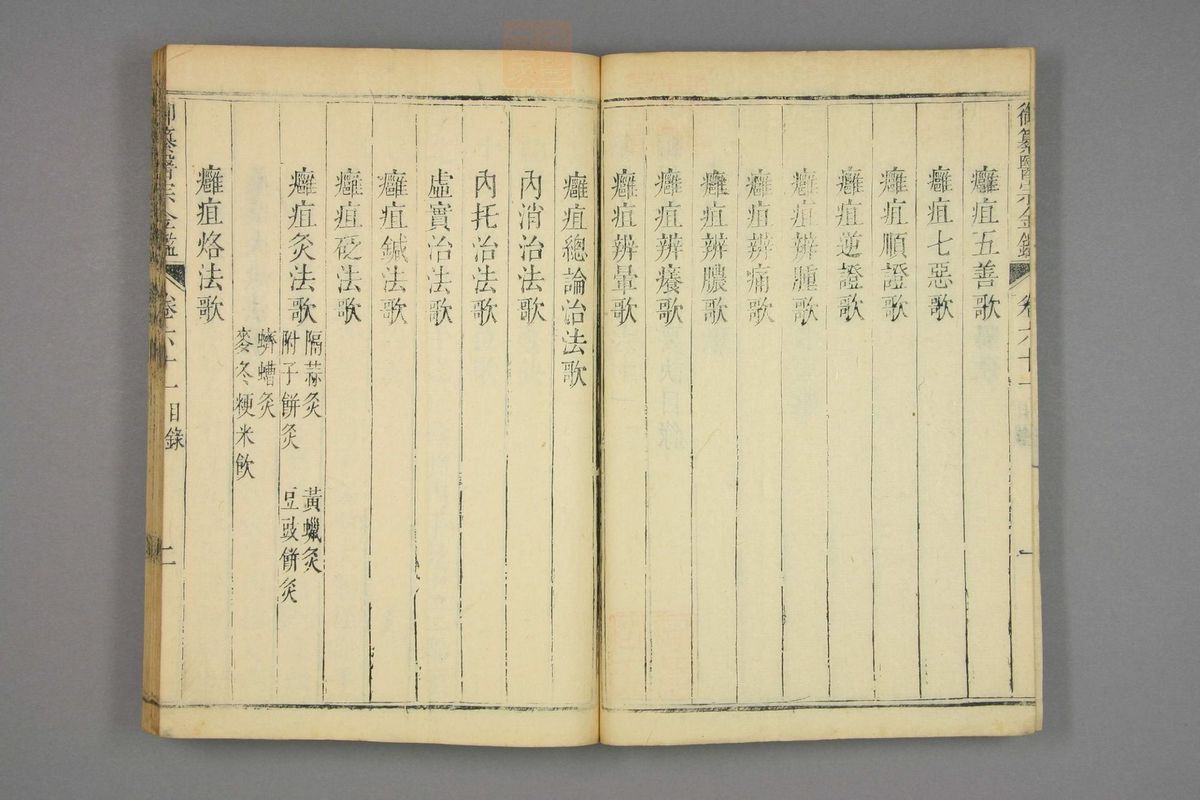 御纂醫宗金鑑 卷六十一 目錄 一
癰疽五善歌
癰疽七惡歌
癰疽順證歌
癰疽逆證歌
癰疽辨腫歌
癰疽辨痛歌
癰疽辨膿歌
癰疽辨癢歌
癰疽辨暈歌
癰疽總論治法歌
內消治法歌
內托治法歌
虛實治法歌
癰疽鍼法歌
癰疽砭法歌
癰疽灸法歌
隔蒜灸 黃蠟灸
附子餅灸 豆豉餅灸
蠐螬灸
麥冬粳米飲
癰疽烙法歌
御纂醫宗金鑑 卷六十一 目錄 二